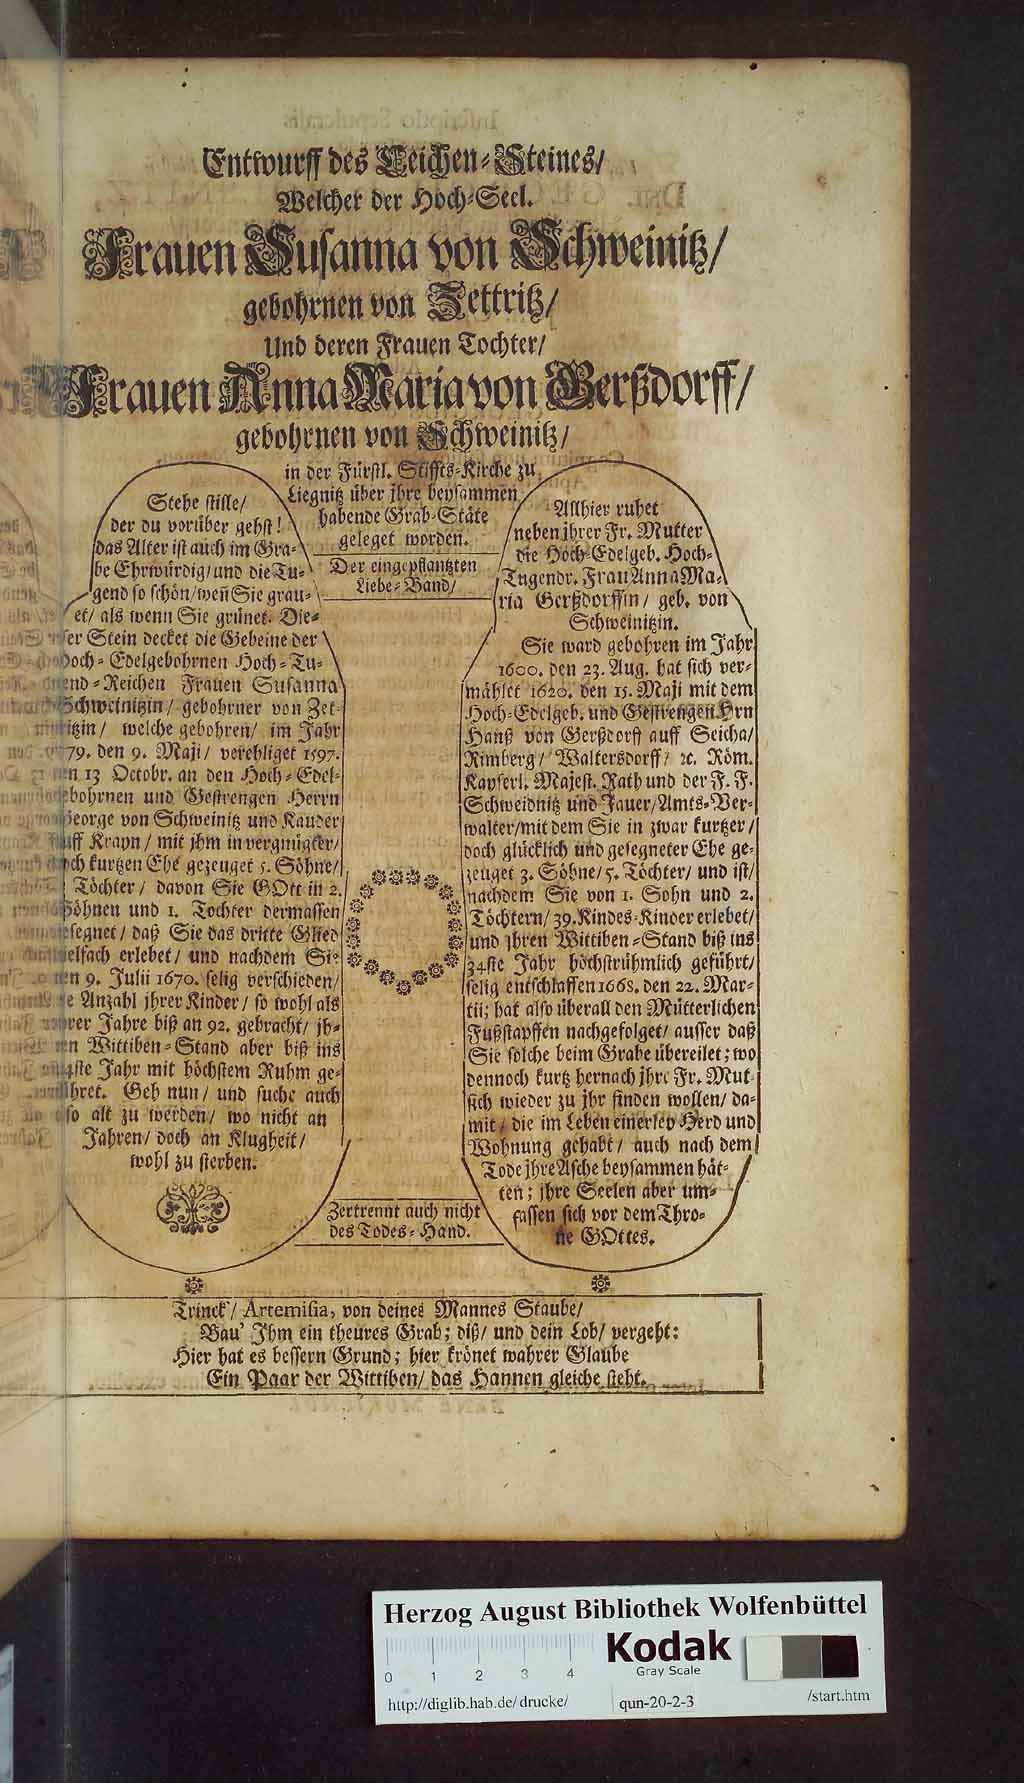 Entwurff des Leichen-Steines/
Welcher der Hoch-Seel.
Frauen Susanna von Schweinitz/
gebohrnen von Zettritz/
Und deren Frauen Tochter/
Frauen Anna Maria von Gerßdorff/
gebohrnen von Schweinitz/
in der Fürstl. Stiffts-Kirche zu
Liegnitz über jhre beysammen
habende Grab-Stäte
geleget worden.
Der eingepflantzten
Liebe-Band/
Stehe stille/
der du vorüber gehst!
das Alter ist auch im Gra-
be Ehrwürdig/und die Tu-
gend so schön/weñ Sie grau-
et/ als wenn Sie grünet. Die-
ser Stein decket die Gebeine der
Hoch-Edelgebohrnen Hoch-Tu-
gend-Reichen Frauen Susanna
Schweinitzin/ gebohrner von Zet-
ritzin/ welche gebohren/ im Jahr
79. den 9. Maji/ verehliget 1597.
den 13 Octobr. an den Hoch-Edel-
gebohrnen und Gestrengen Herrn
George von Schweinitz und Kauder
auff Krayn/ mit jhm in vergnügter/
doch kurtzen Ehe gezeuget 5. Söhne/
Töchter/ davon Sie GOtt in 2.
Söhnen und 1. Tochter dermassen
gesegnet/ daß Sie das dritte Glied
vielfach erlebet/ und nachdem Sie
den 9. Julii 1670. selig verschieden/
die Anzahl jhrer Kinder/ so wohl als
jhrer Jahre biß an 92. gebracht/ jh-
ren Wittiben-Stand aber biß ins
ste Jahr mit höchstem Ruhm ge-
führet. Geh nun/ und suche auch
so alt zu werden/ wo nicht an
Jahren/ doch an Klugheit/
wohl zu sterben.
Allhier ruhet
neben jhrer Fr. Mutter
die Hoch-Edelgeb. Hoch-
Tugendr. Frau Anna Ma-
ria Gerßdorffin/ geb. von
Schweinitzin.
Sie ward gebohren im Jahr
1600. den 23. Aug. hat sich ver-
mählet 1620. den 15. Maji mit dem
Hoch-Edelgeb. und Gestrengen Hrn
Hanß von Gerßdorff auff Seicha/
Rimberg/ Waltersdorff/ ꝛc. Röm.
Kayserl. Majest. Rath und der F. F.
Schweidnitz und Jauer/Amts-Ver-
walter/mit dem Sie in zwar kurtzer/
doch glücklich und gesegneter Ehe ge-
zeuget 3. Söhne/ 5. Töchter/ und ist/
nachdem Sie von 1. Sohn und 2.
Töchtern/ 39. Kindes-Kinder erlebet/
und jhren Wittiben-Stand biß ins
34ste Jahr höchstrühmlich geführt/
selig entschlaffen 1668. den 22. Mar-
tii; hat also überall den Mütterlichen
Fußstapffen nachgefolget/ ausser daß
Sie solche beim Grabe übereilet; wo
dennoch kurtz hernach jhre Fr. Mut
sich wieder zu jhr finden wollen/ da-
mit/ die im Leben einerley Herd und
Wohnung gehabt/ auch nach dem
Tode jhre Asche beysammen hät-
ten; jhre Seelen aber um-
fassen sich vor dem Thro-
ne GOttes.
Zertrennt auch nicht
des Todes-Hand.
Trinck'/ Artemisia, von deines Mannes Staube/
Bau' Jhm ein theures Grab; diß/ und dein Lob/ vergeht:
Hier hat es bessern Grund; hier krönet wahrer Glaube
Ein Paar der Wittiben/ das Hannen gleiche steht.
Herzog August Bibliothek Wolfenbüttel
Kodak
Gray Scale
0 1 2 3 4
http://diglib.hab.de/drucke/ qun-20-2-3 /start.htm